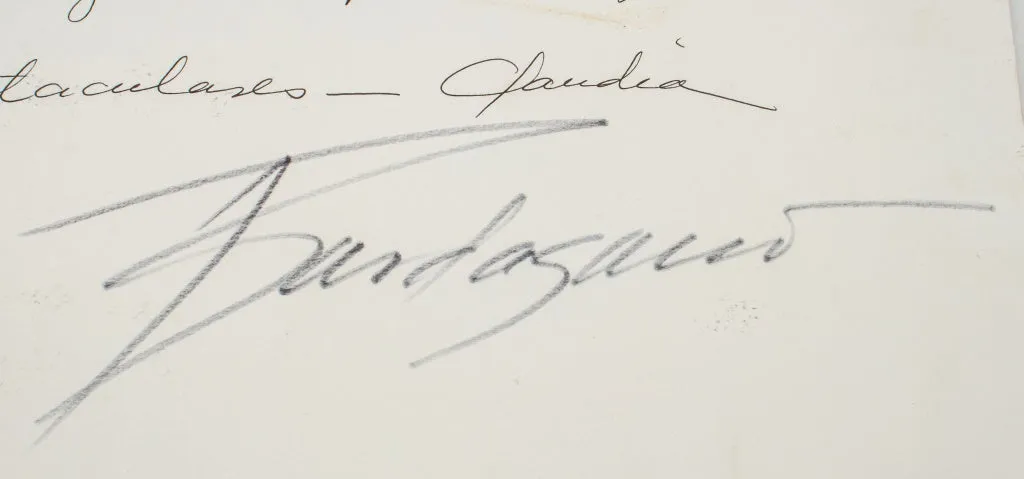 taculares — Claudia
Bardasano